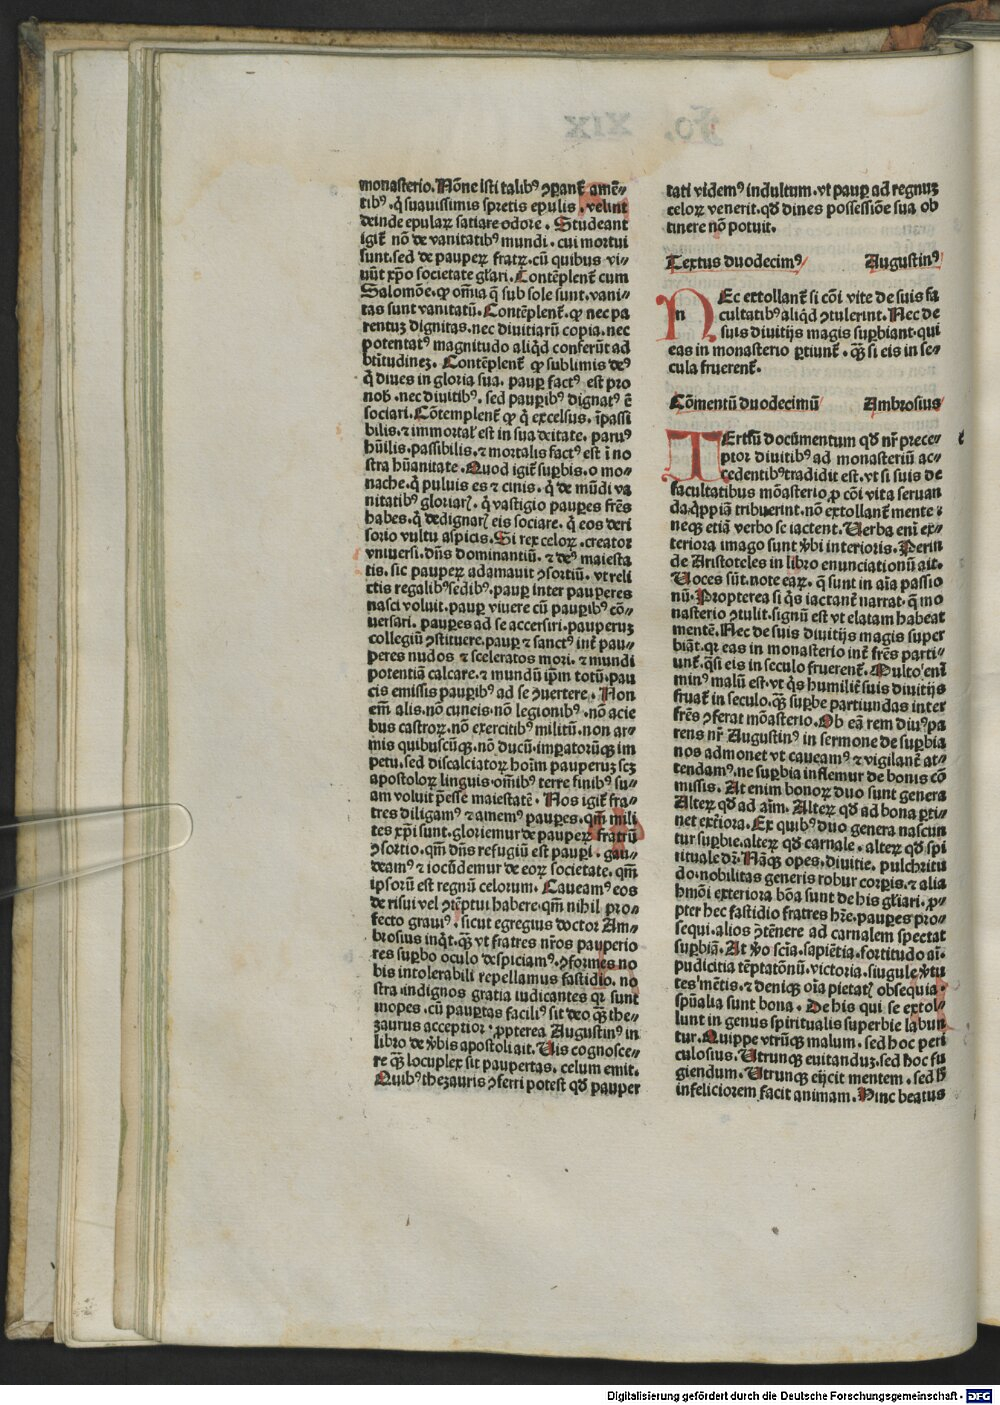 monasterio. Nōne isti talibꝰ ꝯparant̄ amē⸗
tibꝰ. q̇ suauissimis spretis epulis. velint
deinde epulaꝝ satiare odore. Studeant
igit̄ nō de vanitatibꝰ mundi. cui mortui
sunt. sed de paupeꝝ fratꝝ. cū quibus vi⸗
uūt xp̄o societate gl̄ari. Contēplent̄ cum
Salomōe. ꝙ om̄ia q̄ sub sole sunt. vani⸗
tas sunt vanitatū. Contēplent̄. ꝙ nec pa
rentuꝫ dignitas. nec diuitiarū copia. nec
potentatꝰ magnitudo aliq̇d conferūt ad
bt̄itudineꝫ. Contēplent̄ ꝙ sublimis deꝰ
q̇ diues in gloria sua. paup̲ factꝰ est pro
nob̄. nec diuitibꝰ. sed paup̲ibꝰ dignatꝰ ē
sociari. Cōtemplent̄ ꝙ q̇ excelsus. īpassi
bilis. ⁊ immortal̄ est in sua deitate. paruꝰ
hūilis. passibilis. ⁊ mortalis factꝰ est ī no
stra hūanitate. Quod igit̄ sup̲bis. o mo⸗
nache. q̇ puluis es ⁊ cinis. q̇ de mūdi va
nitatibꝰ gloriaris. q̇ vastigio paup̲es fr̄es
habes. q̇ dedignaris eis sociare. q̇ eos deri
sorio vultu aspicis. Si rex celoꝝ. creator
vniuersi. dn̄s dominantiū. ⁊ deꝰ maiesta
tis. sic paupeꝝ adamauit ꝯsortiū. vt reli
ctis regalibꝰ sedibꝰ. paup̲ inter pauperes
nasci voluit. paup̲ viuere cū paup̲ibꝰ cō⸗
uersari. paup̲es ad se accersiri. pauperuꝫ
collegiū ꝯstituere. paup̲ ⁊ sanctꝰ int̄ pau⸗
peres nudos ⁊ sceleratos mori. ⁊ mundi
potentiā calcare. ⁊ mundū ip̄m totū. pau
cis emissis paup̲ibꝰ ad se ꝯuertere. Non
em̄ alis. nō cuneis. nō legionibꝰ. nō acie
bus castroꝝ. nō exercitibꝰ militū. non ar⸗
mis quibuscūqꝫ. nō ducū. imp̲atorūqꝫ im
petu. sed discalciatoꝝ hoīm pauperuꝫ scꝫ
apostoloꝝ linguis. om̄ibꝰ terre finibꝰ su⸗
am voluit p̄esse maiestatē. Nos igit̄ fra⸗
tres diligamꝰ ⁊ amemꝰ paup̲es. qm̄ mili
tes xp̄i sunt. gloriemur de paupeꝝ fratrū
ꝯsortio. qm̄ dn̄s refugiū est paup̲i. gau⸗
deamꝰ ⁊ iocūdemur de eoꝝ societate. qm̄
ipsorū est regnū celorum. Caueamꝰ eos
de risui vel ꝯtēptui habere. qm̄ nihil pro⸗
fecto grauiꝰ. sicut egregius doctor Am⸗
brosius inq̇t. qꝫ vt fratres nr̄os pauperio
res sup̲bo oculo despiciamꝰ. ꝯformes no
bis intolerabili repellamus fastidio. no
stra indignos gratia iudicantes qꝛ sunt
inopes. cū paup̲tas faciliꝰ sit deo qꝫ the⸗
zaurus acceptior. ꝓpterea Augustinꝰ in
libro de v̄bis apostoli ait. Vis cognosce⸗
re qꝫ locuplex sit paupertas. celum emit.
Quibꝰ thezauris ꝯferri potest qd̄ pauper
tati videmꝰ indultum. vt paup̲ ad regnuꝫ
celoꝝ venerit. qd̄ diues possessiōe sua ob
tinere nō potuit.
Textus duodecimꝰ Augustinꝰ
NEc extollant̄ si cōi vite de suis fa
cultatibꝰ aliq̇d ꝯtulerint. Nec de
suis diuitijs magis sup̲biant. qui
eas in monasterio p̲tiunt̄. qꝫ si eis in se⸗
cula fruerent̄.
Cōmentū duodecimū Ambrosius
TErtiū documentum qd̄ nr̄ prece⸗
ptor diuitibꝰ ad monasteriū ac⸗
cedentibꝰ tradidit est. vt si suis de
facultatibus mōasterio. ꝓ cōi vita seruan
da. q̇ppiā tribuerint. nō extollant̄ mente.
neqꝫ etiā verbo se iactent. Verba eni ex⸗
teriora imago sunt v̄bi interioris. Perin
de Aristoteles in libro enunciationū ait.
Voces sūt. note eaꝝ. q̄ sunt in aīa passio
nū. Propterea si q̇s iactant̄ narrat. q̄ mo
nasterio ꝯtulit. signū est vt elatam habeat
mentē. Nec de suis diuitijs magis super
biāt. qꝛ eas in monasterio int̄ fr̄es parti⸗
unt̄. qꝫsi eis in seculo fruerent̄. Multo eni
minꝰ malū est. vt q̇s humilit̄ suis diuitijs
fruat̄ in seculo. qꝫ sup̲be partiundas inter
fr̄es ꝯferat mōasterio. Ob eā rem diuꝰ pa
rens nr̄ Augustinꝰ in sermone de sup̲bia
nos admonet vt caueamꝰ ⁊ vigilant̄ at⸗
tendamꝰ. ne sup̲bia inflemur de bonis cō
missis. At enim bonoꝝ duo sunt genera
Alteꝝ qd̄ ad aīm. Alteꝝ qd̄ ad bona p̲ti⸗
net ext̄iora. Ex quibꝰ duo genera nascun
tur sup̲bie. alteꝝ qd̄ carnale. alteꝝ qd̄ spi
rituale dr̄. Nāqꝫ opes. diuitie. pulchritu
do. nobilitas generis robur corp̲is. ⁊ alia
hm̄oi exteriora bōa sunt de his gl̄iari. ꝓ⸗
pter hec fastidio fratres hr̄e. paup̲es pro⸗
sequi. alios ꝯtēnere ad carnalem spectat
sup̲biā. At v̄o scīa. sapiētia. fortitudo aī.
pudicitia tēptatōnū. victoria. singule v̄tu
tes mētis. ⁊ deniqꝫ oīa pietatis obsequia.
spūalia sunt bona. De his qui se extol⸗
lunt in genus spiritualis superbie labun
tur. Quippe vtrūqꝫ malum. sed hoc peri
culosius. Vtrunqꝫ euitanduꝫ. sed hoc fu
giendum. Vtrunqꝫ eijcit mentem. sed h̄
infeliciorem facit animam. Hinc beatus
Digitalisierung gefördert durch die Deutsche Forschungsgemeinschaft - DFG